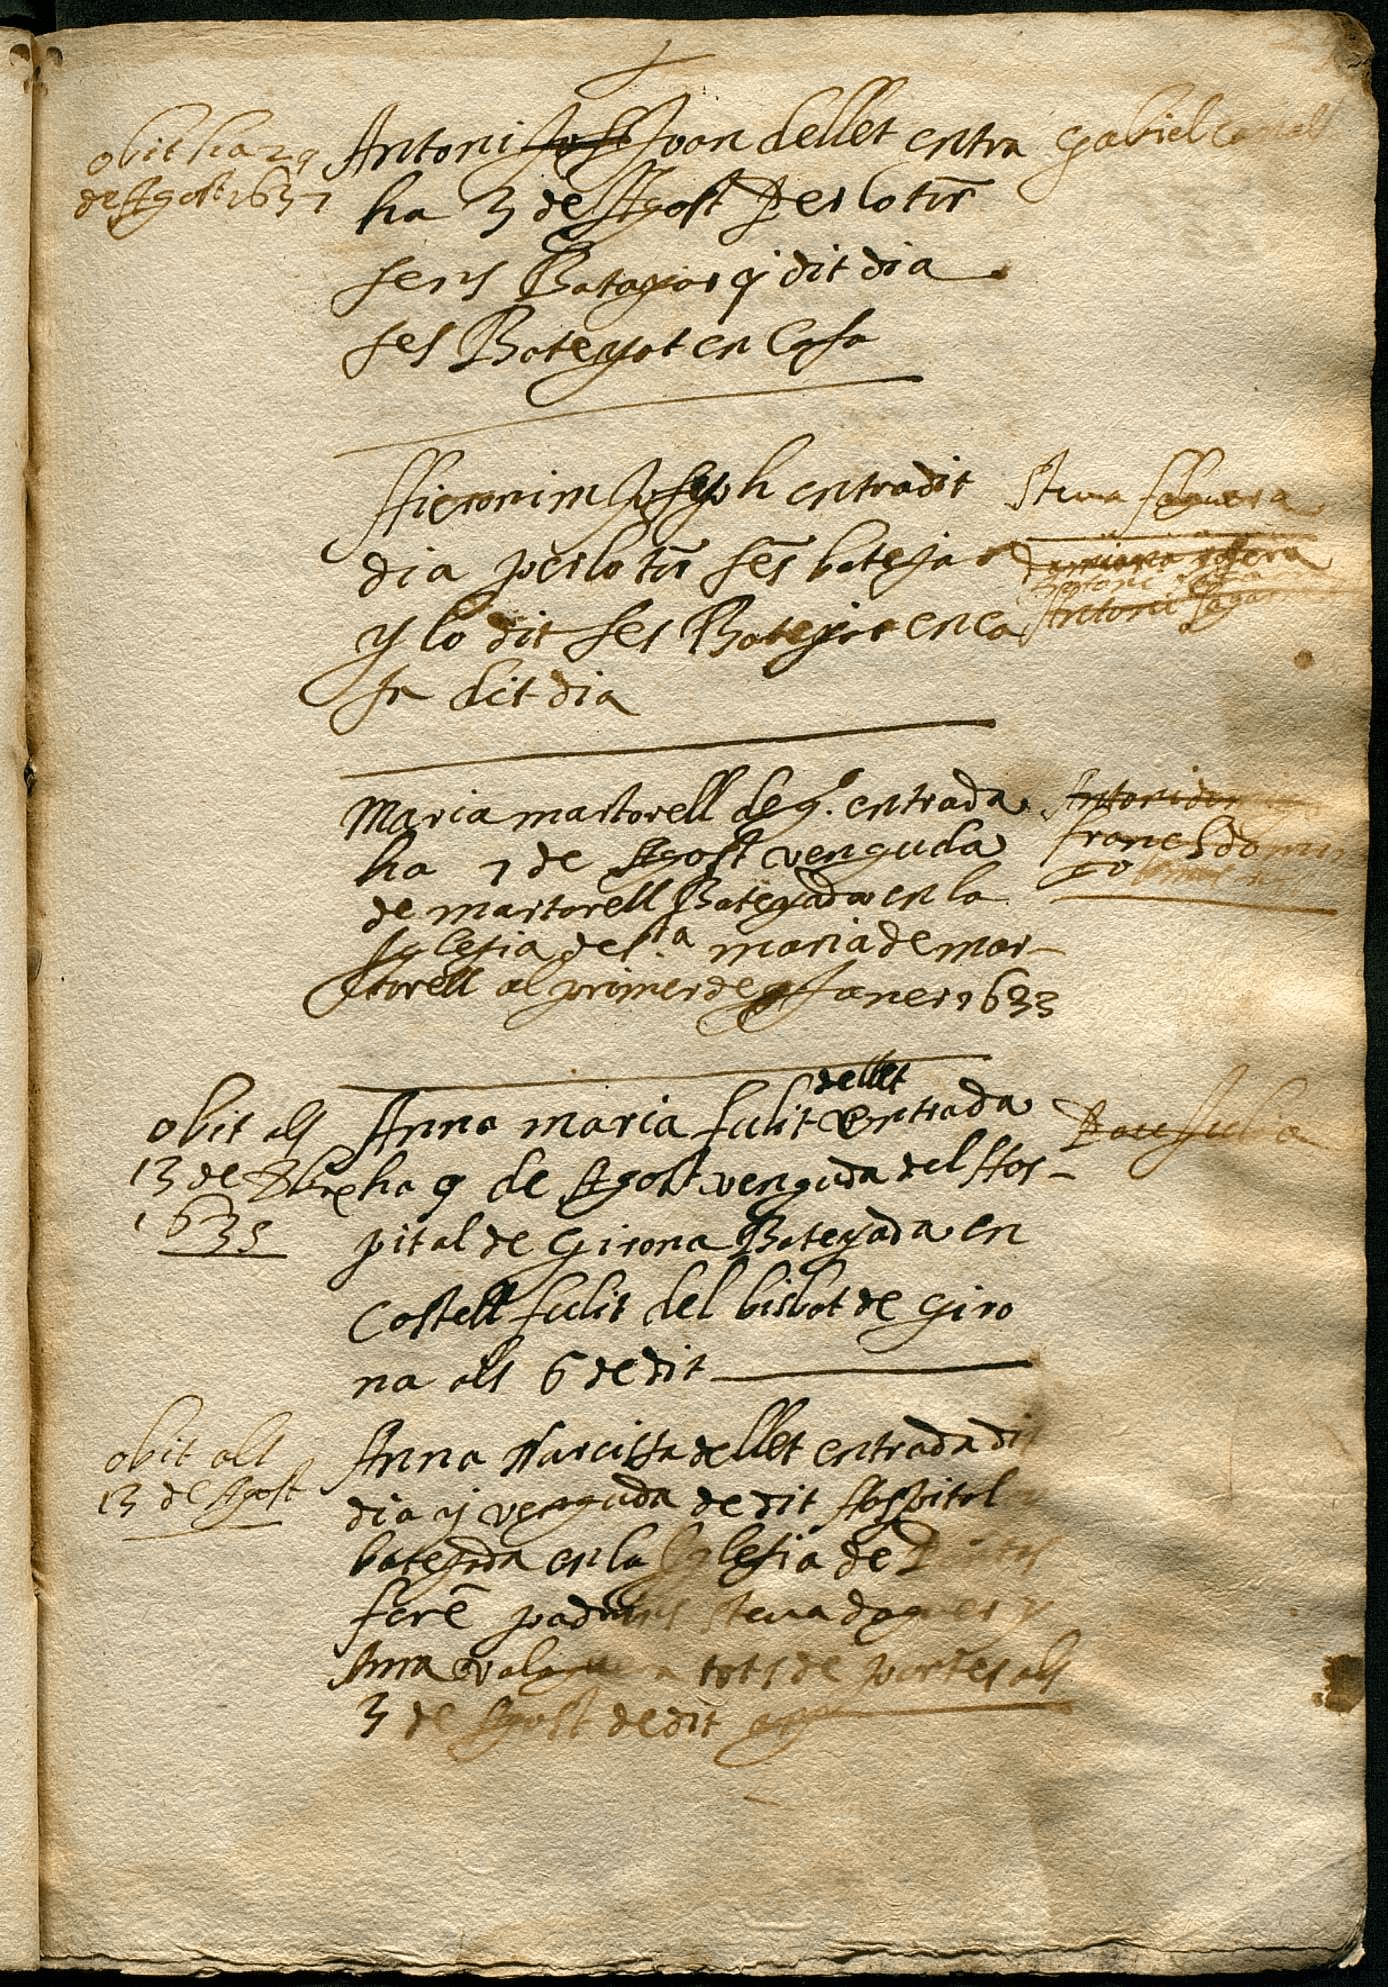 obit ha 29
de Agost 1637
Antoni Joan dellet entra
ha 3 de Agost Per lo torn
sens Batayar q dit dia
ses Bateyat en Casa
Gabriel
Hieronim Joseph entra dit
dia per lo torn sens batejar
y lo dit ses Batejat en ca
sa dit dia
Steva
Antoni
Maria martorell de g.º entrada
ha 7 de Agost venguda
de martorell Bateyada en la
Iglesia de s.ta maria de mar-
torell al primer de Janer 1633
Antoni
Francesc
obit als
13 de 8bre
1635
dellet
Anna maria fulit entrada
ha 9 de Agost venguda del Hos-
pital de Girona Bateyada en
Castell fulit del bisbat de Giro
na als 6 de dit
Pau
obit als
13 de Agost
Anna Narcissa dellet entrada dit
dia y venguda de dit Hospital
bateyada en la Iglesia de
foren padrins Steva y
Anna tots de portes als
3 de Agost de dit any